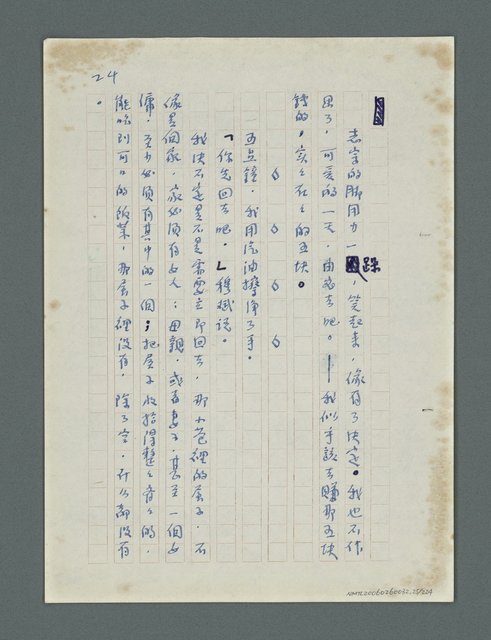 24
志宇的脚用力一跺,笑起来,像有了決定。我也不作
思了,可爱的一天,由它去吧。——我們手該去賺那五块
錢的,实实在在的五块。
五点鐘,我用汽油擦淨了手。
「你先回去吧。」穆斌说。
我决不定是不是需要立即回去,那小巷裡的屋子,不
像是個家,家必须有女人:母親,或者妻子,甚至一個女
傭,至少必须有其中的一個;把屋子收拾得整整齊齊的,
能吃到可口的飯菜,那屋子裡没有,除了空,什么都没有
。
NMTL20060260032.25/224